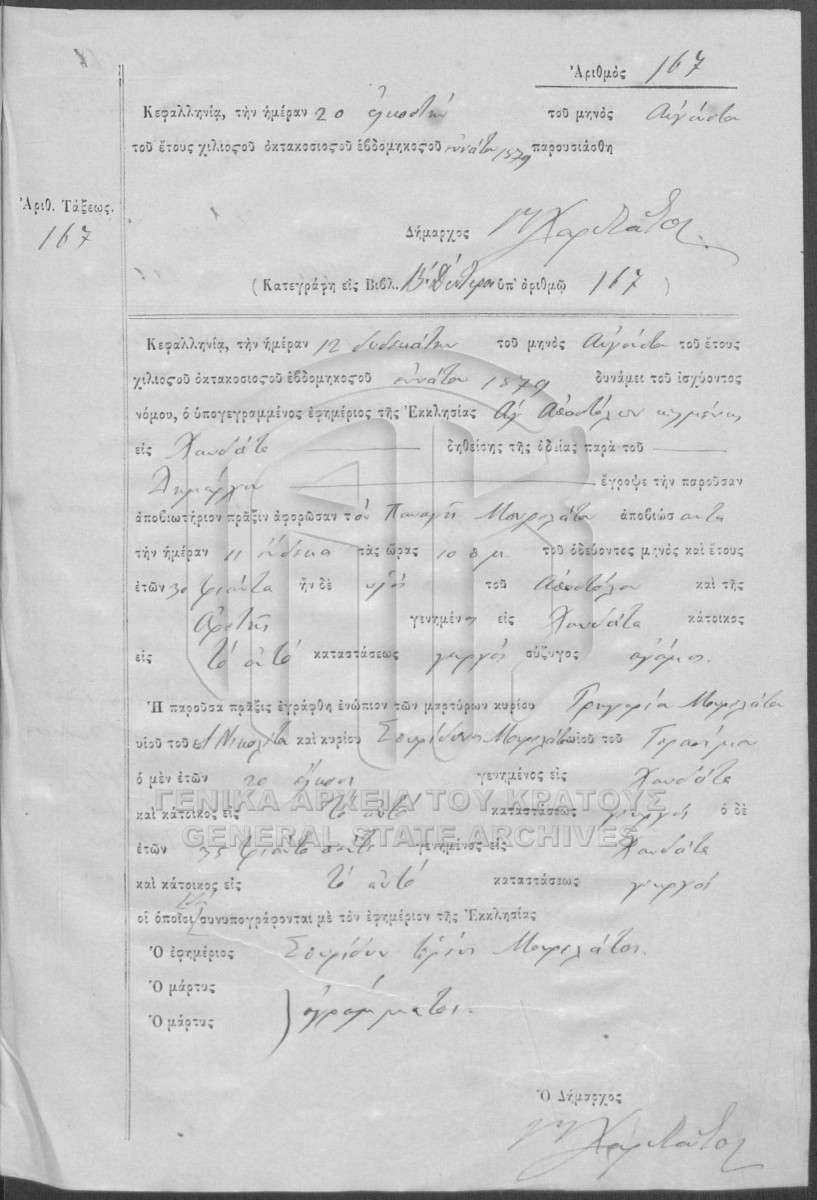 Ἀριθμὸς 167
Κεφαλληνίᾳ, τὴν ἡμέραν 20 εἰκοστήν τοῦ μηνὸς Αὐγούστου
τοῦ ἔτους χιλιοςοῦ ὀκτακοσιοςοῦ ἑβδομηκοςοῦ ἐννάτου 1879 παρουσιάσθη
Ἀριθ. Τάξεως.
167
Δήμαρχος
( Κατεγράφη εἰς Βιβλ. Β' Δεύτερον ὑπ' ἀριθμῷ 167 )
Κεφαλληνίᾳ, τὴν ἡμέραν 12 δωδεκάτην τοῦ μηνὸς Αὐγούστου τοῦ ἔτους
χιλιοςοῦ ὀκτακοσιοςοῦ ἑβδομηκοςοῦ ἐννάτου 1879 δυνάμει τοῦ ἰσχύοντος
νόμου, ὁ ὑπογεγραμμένος ἐφημέριος τῆς Ἐκκλησίας Ἁγ Ἀποστόλων κειμένης
εἰς Χαυδάτα δηθείσης τῆς ἀδείας παρὰ τοῦ
Δημάρχου ἔγραψε τὴν παροῦσαν
ἀποβιωτήριον πρᾶξιν ἀφορῶσαν τὸν Παναγῆ Μουρελάτον ἀποβιώσαντα
τὴν ἡμέραν 11 ἕνδεκα τὰς ὥρας 10 π μ τοῦ ὁδεύοντος μηνὸς καὶ ἔτους
ἐτῶν 30 τριάντα ἦν δὲ υἱὸς τοῦ Ἀποστόλου καὶ τῆς
Ἀρετῆς γενημένος εἰς Χαυδάτα κάτοικος
εἰς τὸ αὐτὸ καταστάσεως γεωργὸς σύζυγος ἄγαμος.
Ἡ παροῦσα πρᾶξις ἐγράφθη ἐνώπιον τῶν μαρτύρων κυρίου Γρηγορίου Μουρελάτου
υἱοῦ τοῦ Νικολέτου καὶ κυρίου Σπυρίδωνος Μουρελάτου υἱοῦ τοῦ Γερασίμου
ὁ μὲν ἐτῶν 20 εἴκοσι γενημένος εἰς Χαυδάτα
ΓΕΝΙΚΑ ΑΡΧΕΙΑ ΤΟΥ ΚΡΑΤΟΥΣ
καὶ κάτοικος εἰς τὸ αὐτὸ καταστάσεως γεωργὸς ὁ δὲ
GENERAL STATE ARCHIVES
ἐτῶν 35 τριάντα πέντε γενημένος εἰς Χαυδάτα
καὶ κάτοικος εἰς τὸ αὐτὸ καταστάσεως γεωργὸς
οἱ ὁποῖοι δὲν συνυπογράφονται μὲ τὸν ἐφημέριον τῆς Ἐκκλησίας
Ὁ ἐφημέριος Σπυρίδων ἱερεὺς Μουρελάτος.
Ὁ μάρτυς
Ὁ μάρτυς ἀγράμματοι.
Ὁ Δήμαρχος